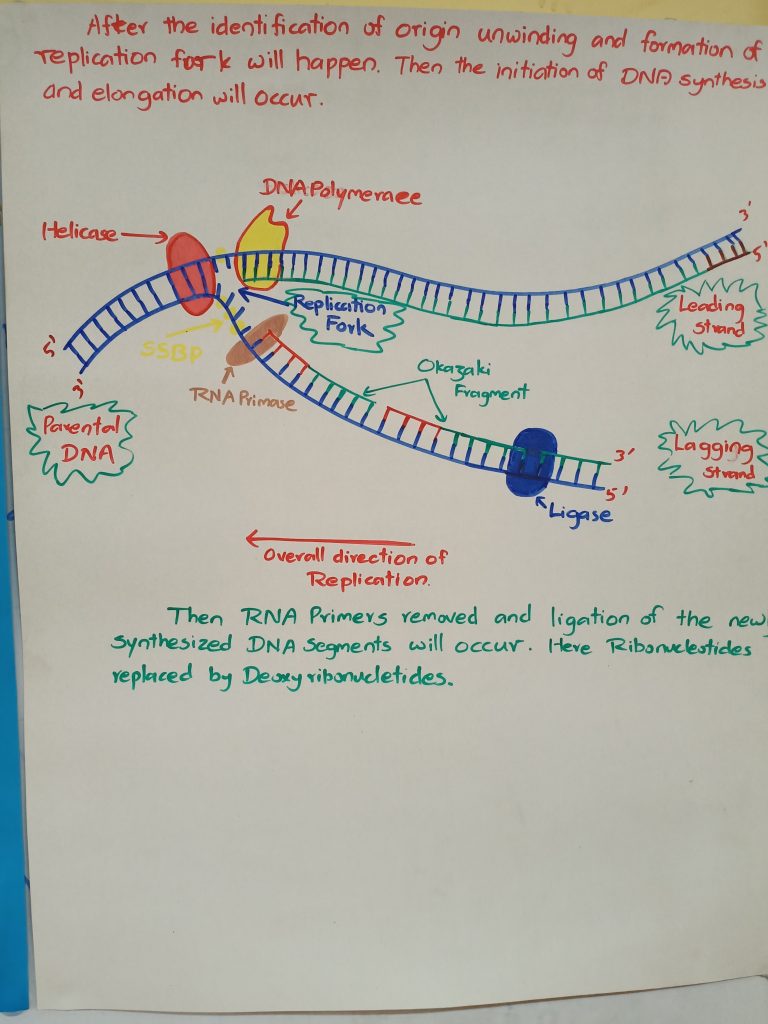 After the identification of origin unwinding and formation of
replication fork will happen. Then the initiation of DNA synthesis
and elongation will occur.
DNA Polymeraee
Helicase
3'
5'
Replication
Fork
Leading
Strand
SSBP
5'
3'
RNA Primase
Okazaki
Fragment
Parental
DNA
3'
5'
Lagging
Strand
Ligase
Overall direction of
Replication.
Then RNA Primers removed and ligation of the new
synthesized DNA segments will occur. Here Ribonucleotides
replaced by Deoxyribonucletides.